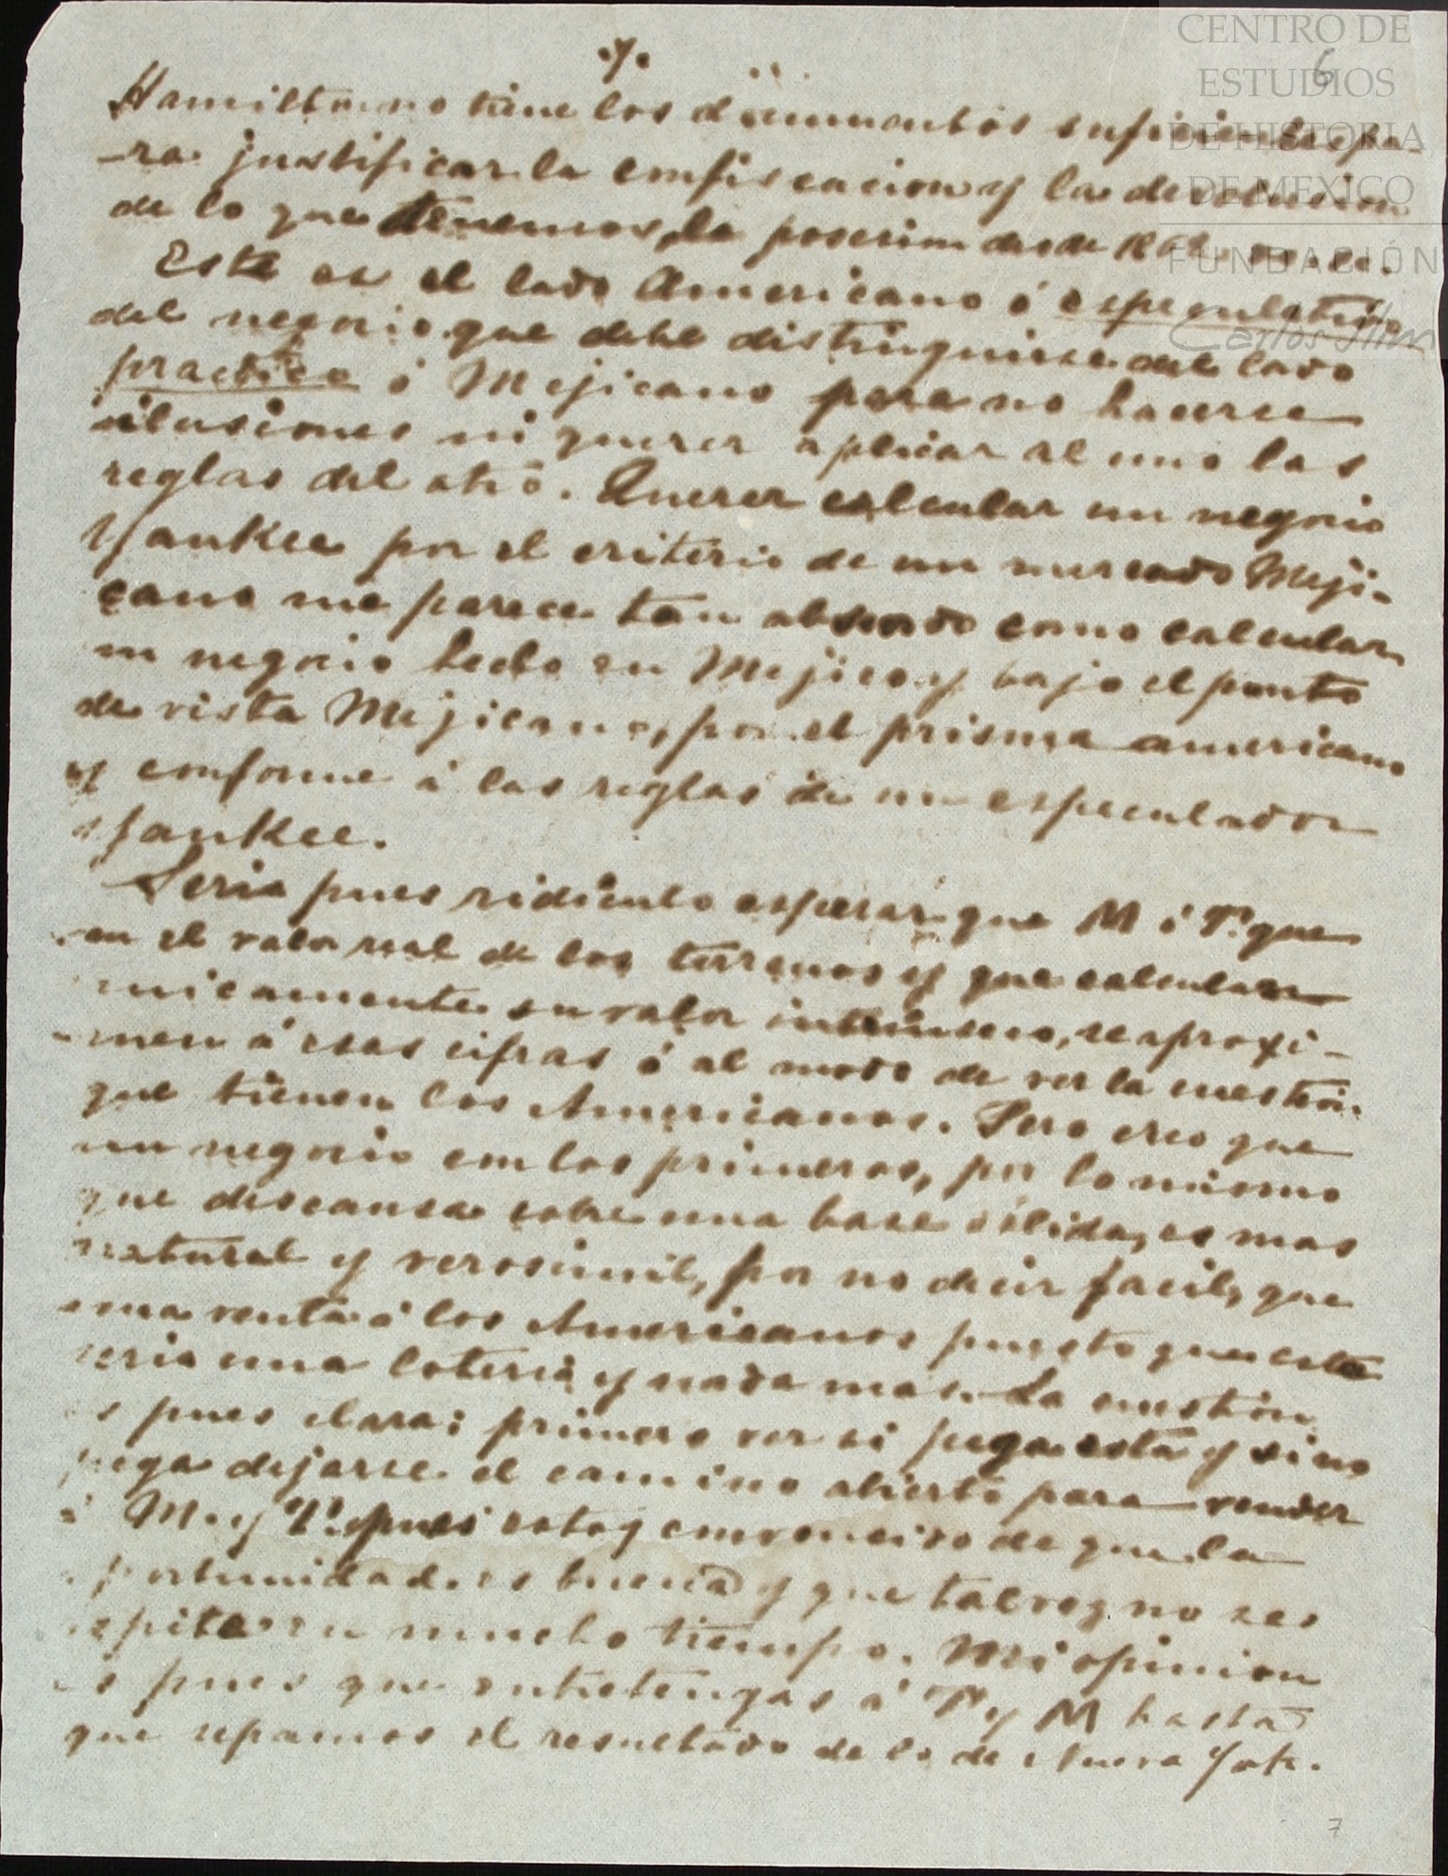 .7.
6
CENTRO DE
ESTUDIOS
DE HISTORIA
DE MEXICO
FUNDACIÓN
Carlos Slim
Hamilton no tiene los documentos suficientes pa-
-ra justificar la confiscacion y la devolucion
de lo que tenemos, la posesion desde
Este es el lado Americano ó especulativo
del negocio que debe distinguirse del lado
practico ó Mejicano para no hacerse
ilusiones ni querer aplicar al uno las
reglas del otro. Querer calcular un negocio
Yankee por el criterio de un mercado Meji-
cano me parece tan absurdo como calcular
un negocio hecho en Mejico y bajo el punto
de vista Mejicano, por el prisma americano
y conforme á las reglas de un especulador
Yankee.
Seria pues ridiculo esperar que M ó T. que
en el valor real de los terrenos y que calculan
unicamente su valor intrinseco, se aproxi-
men á esas cifras ó al modo de ver la cuestion
que tienen los Americanos. Pero creo que
un negocio con los primeros, por lo mismo
que descansa sobre una base sólida, es mas
natural y verosimil, por no decir facil, que
una venta á los Americanos puesto que esta
seria una loteria y nada mas. La cuestion
es pues clara: primero ver si pega esta y si no
pega dejarse el camino abierto para vender
á M. y T. pues estoy convencido de que la
oportunidad es buena y que talvez no se
repita en mucho tiempo. Mi opinion
es pues que entretengas á T y M hasta
que sepamos el resultado de lo de Nueva York.
7